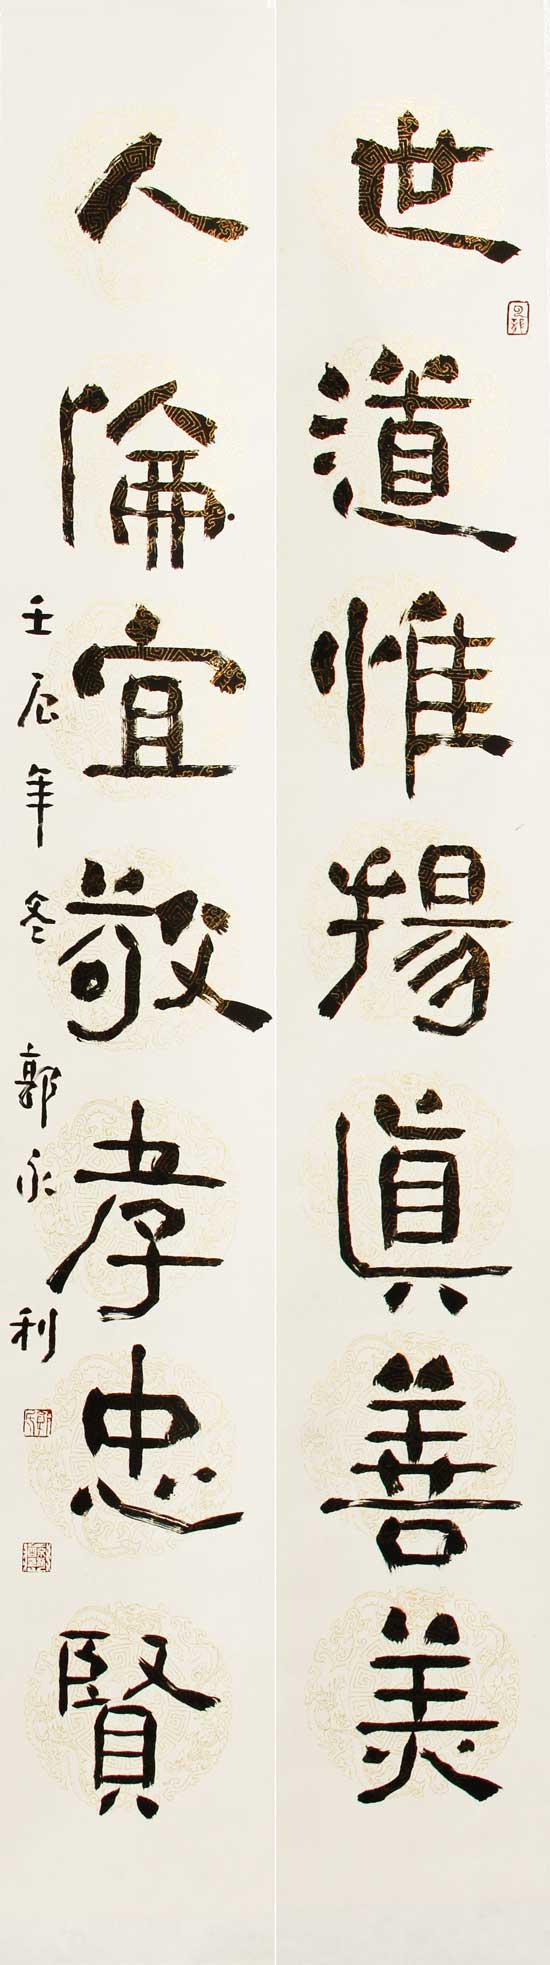 世道惟揚真善美
人倫宜敬孝忠賢
壬辰年冬 郭永利